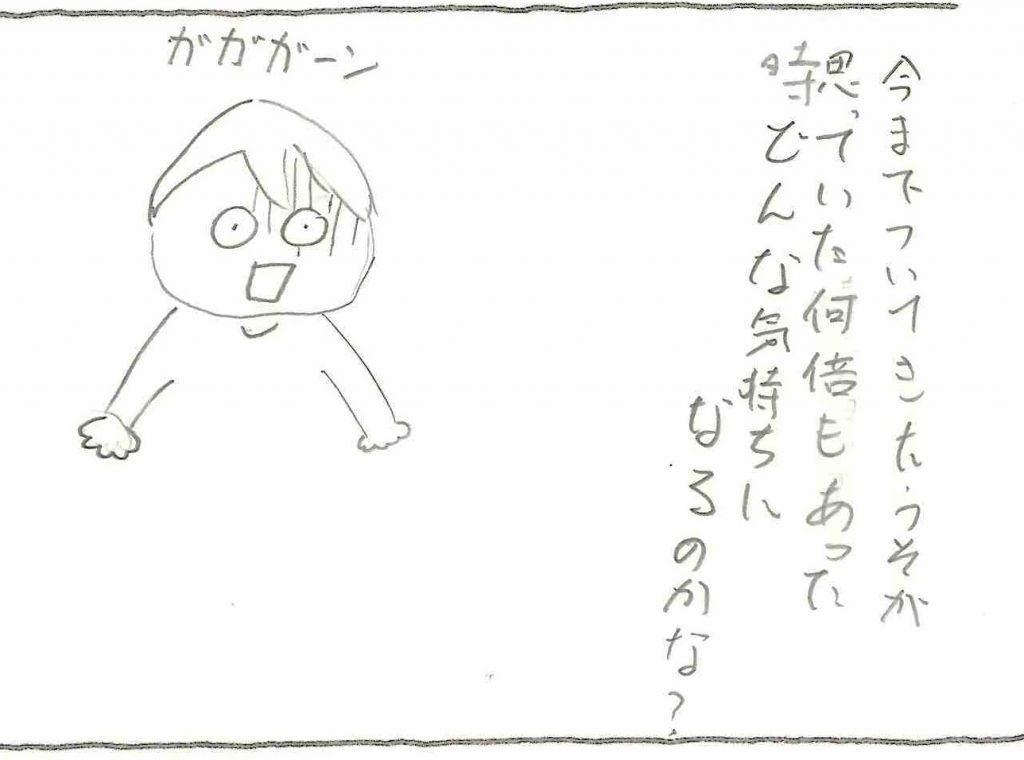 今までついてきたうそが
思っていた何倍もあった
時どんな気持ちに
なるのかな?
ガガガーン